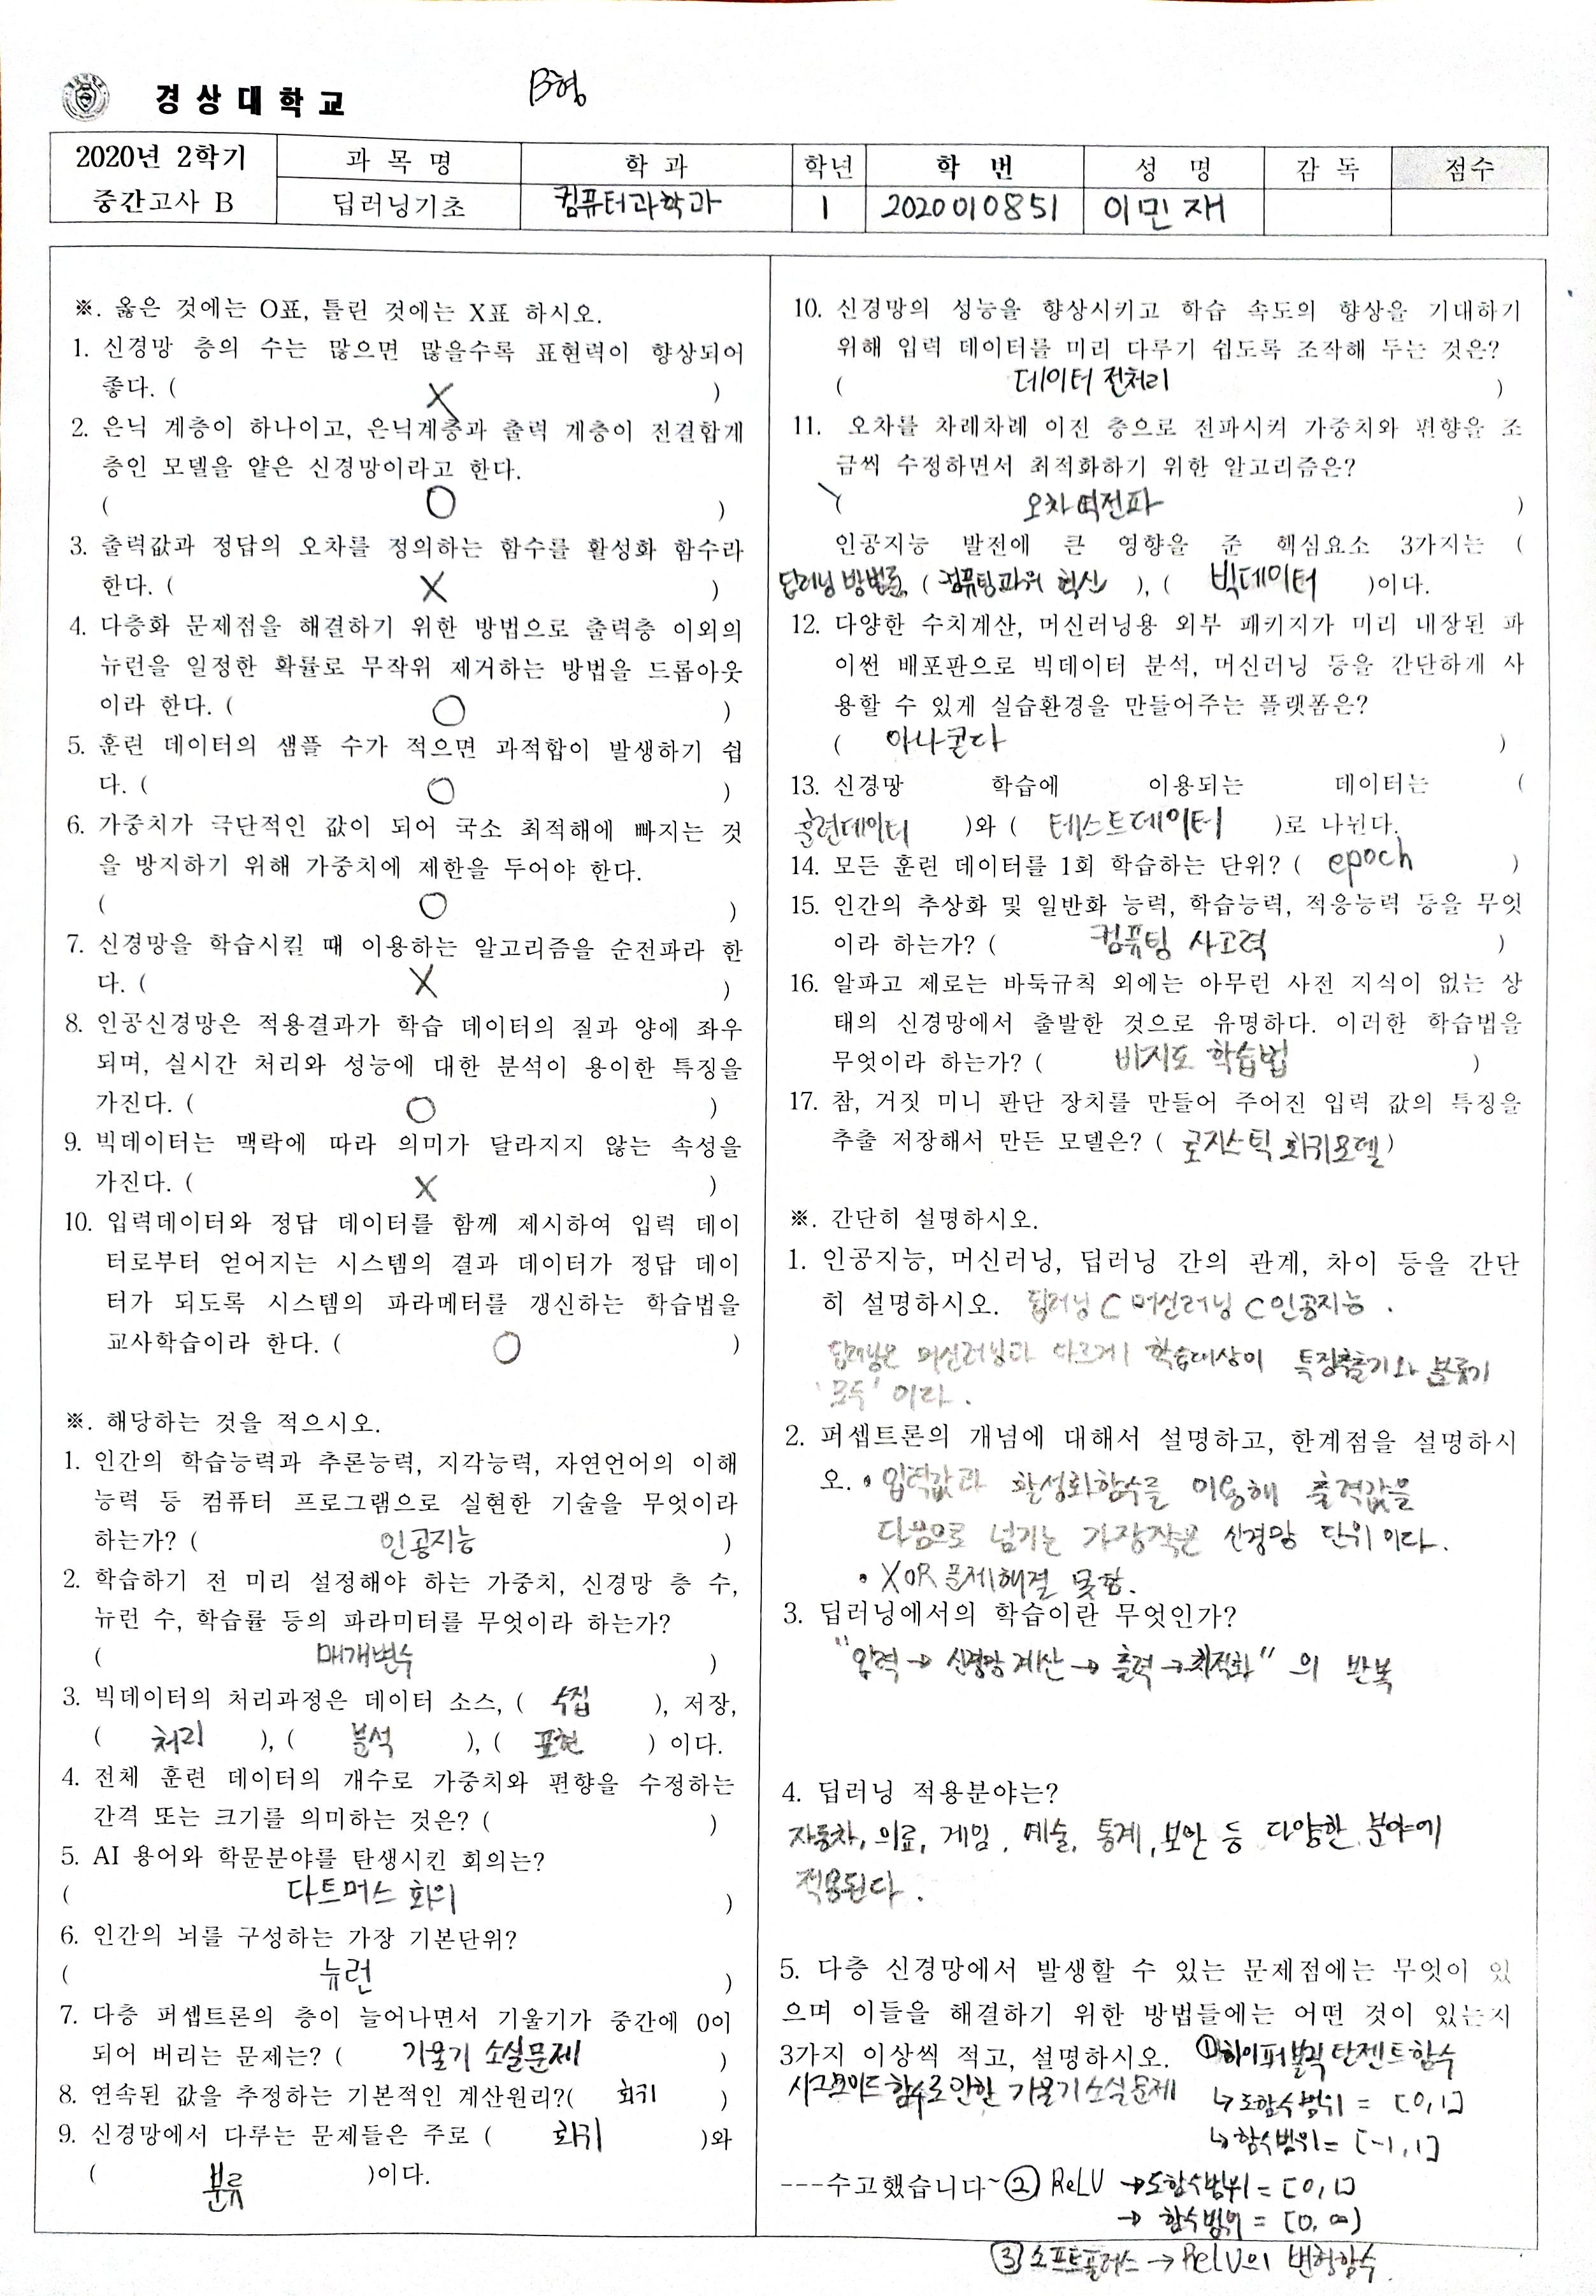 경상대학교
B형
2020년 2학기
중간고사 B
과 목 명
학 과
학년
학 번
성 명
감 독
점수
딥러닝기초
컴퓨터과학과
1
2020010851
이민재
※. 옳은 것에는 O표, 틀린 것에는 X표 하시오.
1. 신경망 층의 수는 많으면 많을수록 표현력이 향상되어
좋다. ( X )
2. 은닉 계층이 하나이고, 은닉계층과 출력 계층이 전결합계
층인 모델을 얕은 신경망이라고 한다.
( O )
3. 출력값과 정답의 오차를 정의하는 함수를 활성화 함수라
한다. ( X )
4. 다층화 문제점을 해결하기 위한 방법으로 출력층 이외의
뉴런을 일정한 확률로 무작위 제거하는 방법을 드롭아웃
이라 한다. ( O )
5. 훈련 데이터의 샘플 수가 적으면 과적합이 발생하기 쉽
다. ( O )
6. 가중치가 극단적인 값이 되어 국소 최적해에 빠지는 것
을 방지하기 위해 가중치에 제한을 두어야 한다.
( O )
7. 신경망을 학습시킬 때 이용하는 알고리즘을 순전파라 한
다. ( X )
8. 인공신경망은 적용결과가 학습 데이터의 질과 양에 좌우
되며, 실시간 처리와 성능에 대한 분석이 용이한 특징을
가진다. ( O )
9. 빅데이터는 맥락에 따라 의미가 달라지지 않는 속성을
가진다. ( X )
10. 입력데이터와 정답 데이터를 함께 제시하여 입력 데이
터로부터 얻어지는 시스템의 결과 데이터가 정답 데이
터가 되도록 시스템의 파라메터를 갱신하는 학습법을
교사학습이라 한다. ( O )
※. 해당하는 것을 적으시오.
1. 인간의 학습능력과 추론능력, 지각능력, 자연언어의 이해
능력 등 컴퓨터 프로그램으로 실현한 기술을 무엇이라
하는가? ( 인공지능 )
2. 학습하기 전 미리 설정해야 하는 가중치, 신경망 층 수,
뉴런 수, 학습률 등의 파라미터를 무엇이라 하는가?
( 매개변수 )
3. 빅데이터의 처리과정은 데이터 소스, ( 수집 ), 저장,
( 처리 ), ( 분석 ), ( 표현 ) 이다.
4. 전체 훈련 데이터의 개수로 가중치와 편향을 수정하는
간격 또는 크기를 의미하는 것은? ( )
5. AI 용어와 학문분야를 탄생시킨 회의는?
( 다트머스 회의 )
6. 인간의 뇌를 구성하는 가장 기본단위?
( 뉴런 )
7. 다층 퍼셉트론의 층이 늘어나면서 기울기가 중간에 0이
되어 버리는 문제는? ( 기울기 소실문제 )
8. 연속된 값을 추정하는 기본적인 계산원리?( 회귀 )
9. 신경망에서 다루는 문제들은 주로 ( 회귀 )와
( 분류 )이다.
10. 신경망의 성능을 향상시키고 학습 속도의 향상을 기대하기
위해 입력 데이터를 미리 다루기 쉽도록 조작해 두는 것은?
( 데이터 전처리 )
11. 오차를 차례차례 이전 층으로 전파시켜 가중치와 편향을 조
금씩 수정하면서 최적화하기 위한 알고리즘은?
( 오차역전파 )
인공지능 발전에 큰 영향을 준 핵심요소 3가지는 (
딥러닝 방법론, ( 컴퓨팅파워 혁신 ), ( 빅데이터 )이다.
12. 다양한 수치계산, 머신러닝용 외부 패키지가 미리 내장된 파
이썬 배포판으로 빅데이터 분석, 머신러닝 등을 간단하게 사
용할 수 있게 실습환경을 만들어주는 플랫폼은?
( 아나콘다 )
13. 신경망 학습에 이용되는 데이터는 (
훈련데이터 )와 ( 테스트데이터 )로 나뉜다.
14. 모든 훈련 데이터를 1회 학습하는 단위? ( epoch )
15. 인간의 추상화 및 일반화 능력, 학습능력, 적응능력 등을 무엇
이라 하는가? ( 컴퓨팅 사고력 )
16. 알파고 제로는 바둑규칙 외에는 아무런 사전 지식이 없는 상
태의 신경망에서 출발한 것으로 유명하다. 이러한 학습법을
무엇이라 하는가? ( 비지도 학습법 )
17. 참, 거짓 미니 판단 장치를 만들어 주어진 입력 값의 특징을
추출 저장해서 만든 모델은? ( 로지스틱 회귀모델 )
※. 간단히 설명하시오.
1. 인공지능, 머신러닝, 딥러닝 간의 관계, 차이 등을 간단
히 설명하시오. 딥러닝 ⊂ 머신러닝 ⊂ 인공지능 .
딥러닝은 머신러닝과 다르게 학습대상이 특징추출기와 분류기
'모두' 이다.
2. 퍼셉트론의 개념에 대해서 설명하고, 한계점을 설명하시
오. • 입력값과 활성화함수를 이용해 출력값을
다음으로 넘기는 가장작은 신경망 단위이다.
• XOR 문제해결 못함.
3. 딥러닝에서의 학습이란 무엇인가?
"입력 → 신경망 계산 → 출력 → 최적화" 의 반복
4. 딥러닝 적용분야는?
자동차, 의료, 게임, 예술, 통계, 보안 등 다양한 분야에
적용된다.
5. 다층 신경망에서 발생할 수 있는 문제점에는 무엇이 있
으며 이들을 해결하기 위한 방법들에는 어떤 것이 있는지
3가지 이상씩 적고, 설명하시오. ① 하이퍼볼릭 탄젠트함수
시그모이드 함수로 인한 기울기 소실문제 ↳ 도함수범위 = [0, 1]
↳ 함수범위 = [-1, 1]
---수고했습니다~ ② ReLU → 도함수범위 = [0, 1]
→ 함수범위 = [0, ∞)
③ 소프트플러스 → ReLU의 변형함수.